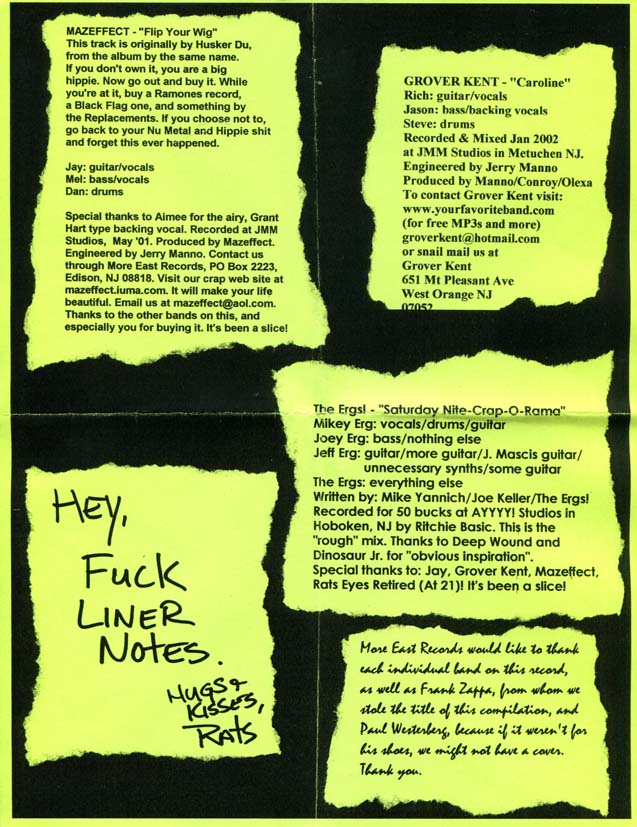 MAZEFFECT - "Flip Your Wig"
This track is originally by Husker Du,
from the album by the same name.
If you don't own it, you are a big
hippie. Now go out and buy it. While
you're at it, buy a Ramones record,
a Black Flag one, and something by
the Replacements. If you choose not to,
go back to your Nu Metal and Hippie shit
and forget this ever happened.
Jay: guitar/vocals
Mel: bass/vocals
Dan: drums
Special thanks to Aimee for the airy, Grant
Hart type backing vocal. Recorded at JMM
Studios, May '01. Produced by Mazeffect.
Engineered by Jerry Manno. Contact us
through More East Records, PO Box 2223,
Edison, NJ 08818. Visit our crap web site at
mazeffect.iuma.com. It will make your life
beautiful. Email us at mazeffect@aol.com.
Thanks to the other bands on this, and
especially you for buying it. It's been a slice!
GROVER KENT - "Caroline"
Rich: guitar/vocals
Jason: bass/backing vocals
Steve: drums
Recorded & Mixed Jan 2002
at JMM Studios in Metuchen NJ.
Engineered by Jerry Manno
Produced by Manno/Conroy/Olexa
To contact Grover Kent visit:
www.yourfavoriteband.com
(for free MP3s and more)
groverkent@hotmail.com
or snail mail us at
Grover Kent
651 Mt Pleasant Ave
West Orange NJ
07052
The Ergs! - "Saturday Nite-Crap-O-Rama"
Mikey Erg: vocals/drums/guitar
Joey Erg: bass/nothing else
Jeff Erg: guitar/more guitar/J. Mascis guitar/
unnecessary synths/some guitar
The Ergs: everything else
Written by: Mike Yannich/Joe Keller/The Ergs!
Recorded for 50 bucks at AYYYY! Studios in
Hoboken, NJ by Ritchie Basic. This is the
"rough" mix. Thanks to Deep Wound and
Dinosaur Jr. for "obvious inspiration".
Special thanks to: Jay, Grover Kent, Mazeffect,
Rats Eyes Retired (At 21)! It's been a slice!
Hey,
Fuck
Liner
Notes.
Hugs &
Kisses,
Rats
More East Records would like to thank
each individual band on this record,
as well as Frank Zappa, from whom we
stole the title of this compilation, and
Paul Westerberg, because if it weren't for
his shoes, we might not have a cover.
Thank you.